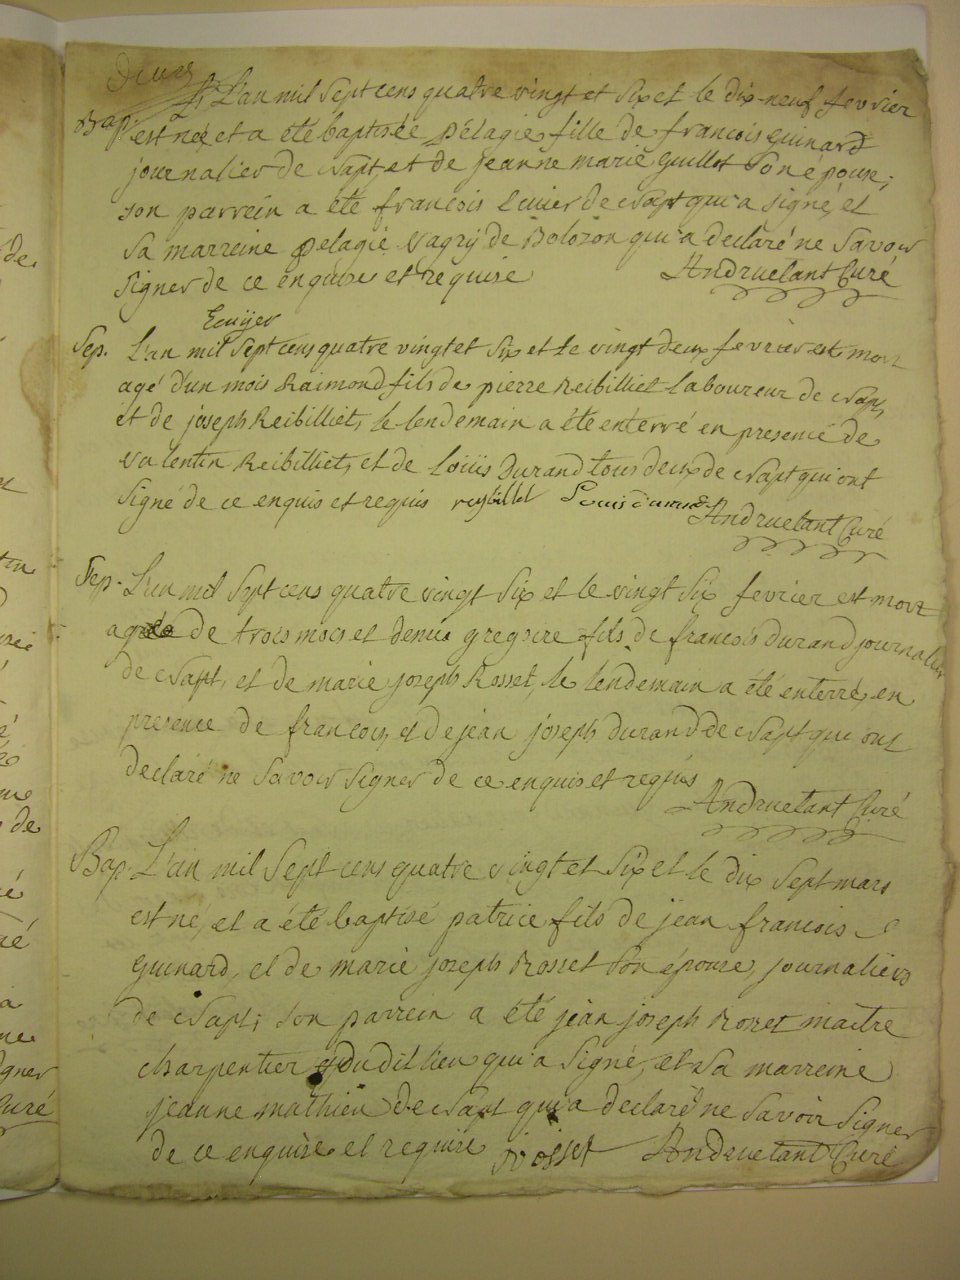 Bap. L'an mil sept cens quatre vingt et six et le dix-neuf fevrier
est née et a été baptisée pélagie fille de francois guinard
journalier de Napt, et de jeanne marie guillot son épouse,
son parrein a été francois Cuvier de Napt qui a signé, et
sa marreine pelagie Vagry de Bolozon qui a declaré ne savoir
signer de ce enquise et requise Andruetant Curé
Sep. L'an mil sept cens quatre vingt et six et le vingt deux fevrier est mort
agé d'un mois Raimond fils de pierre Reibilliet laboureur de Napt,
et de joseph Reibilliet, le lendemain a été enterré en presence de
Valentin Reibilliet, et de loüis Durand tous deux de Napt qui ont
signé de ce enquis et requis reybillet Louis durand Andruetant Curé
Sep. L'an mil sept cens quatre vingt six et le vingt six fevrier est mort
agé de trois mois et demie gregoire fils de francois durand journalier
de Napt, et de marie joseph Rosset, le lendemain a été enterré, en
presence de francois, et de jean joseph durand de Napt qui ont
declaré ne savoir signer de ce enquis et requis
Andruetant Curé
Bap. L'an mil sept cens quatre vingt et six et le dix sept mars
est né, et a été baptisé patrice fils de jean francois
Guinard, et de marie joseph Rosset son épouse, journaliers
de Napt; son parrein a été jean joseph Rosset maitre
charpentier dudit lieu qui a signé, et sa marreine
jeanne mathieu de Napt qui a declaré ne savoir signer
de ce enquise et requise j rosset Andruetant Curé